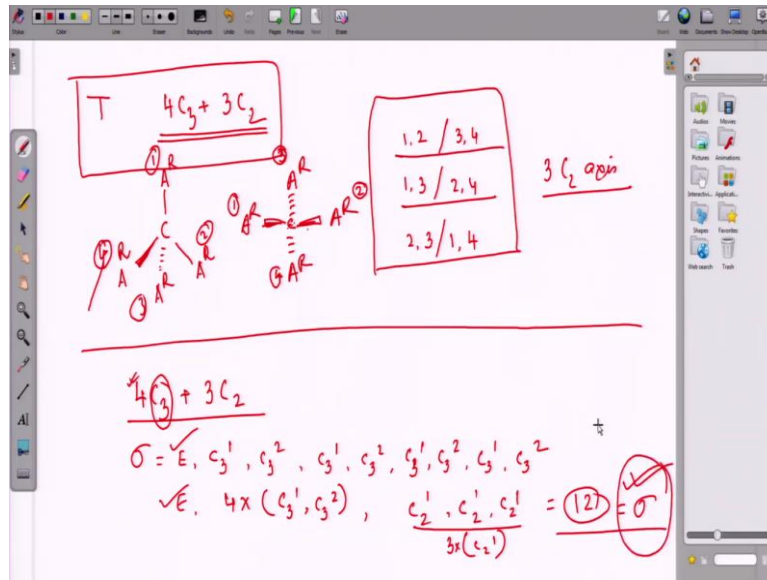 Stylus Color Line Eraser Backgrounds Undo Redo Pages Previous Next Erase Board Web Documents Show Desktop
T 4C₃ + 3C₂
① Aᴿ
C
④ Aᴿ ③ Aᴿ ② Aᴿ
③ Aᴿ
① Aᴿ C Aᴿ ②
④ Aᴿ
1,2 / 3,4
1,3 / 2,4
2,3 / 1,4
3 C₂ axis
4C₃ + 3C₂
σ = E, C₃¹, C₃², C₃¹, C₃², C₃¹, C₃², C₃¹, C₃²
E, 4x (C₃¹, C₃²), C₂¹, C₂¹, C₂¹ = 12 = σ
3x(C₂¹)
Audios Movies
Pictures Animations
Interactivi... Applicati...
Shapes Favorites
Web search Trash